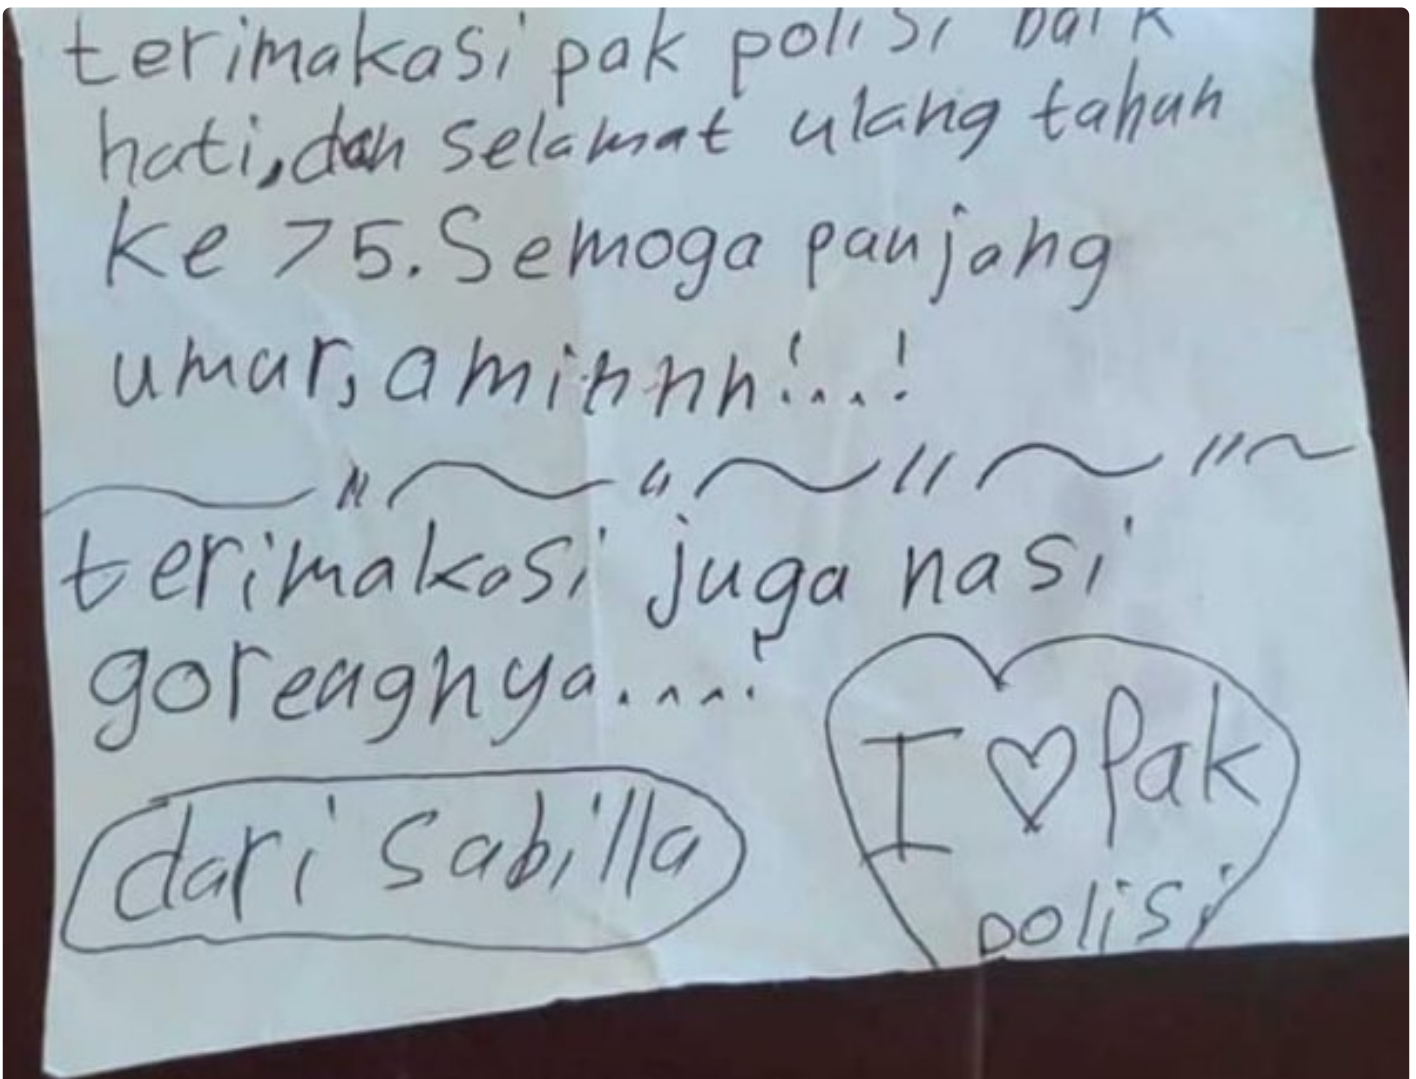 terimakasi pak polisi baik
hati, dan selamat ulang tahun
ke 75. Semoga panjang
umur, aminnnn!...!
terimakasi juga nasi
gorengnya....!
dari Sabilla
I ♡ Pak
polisi